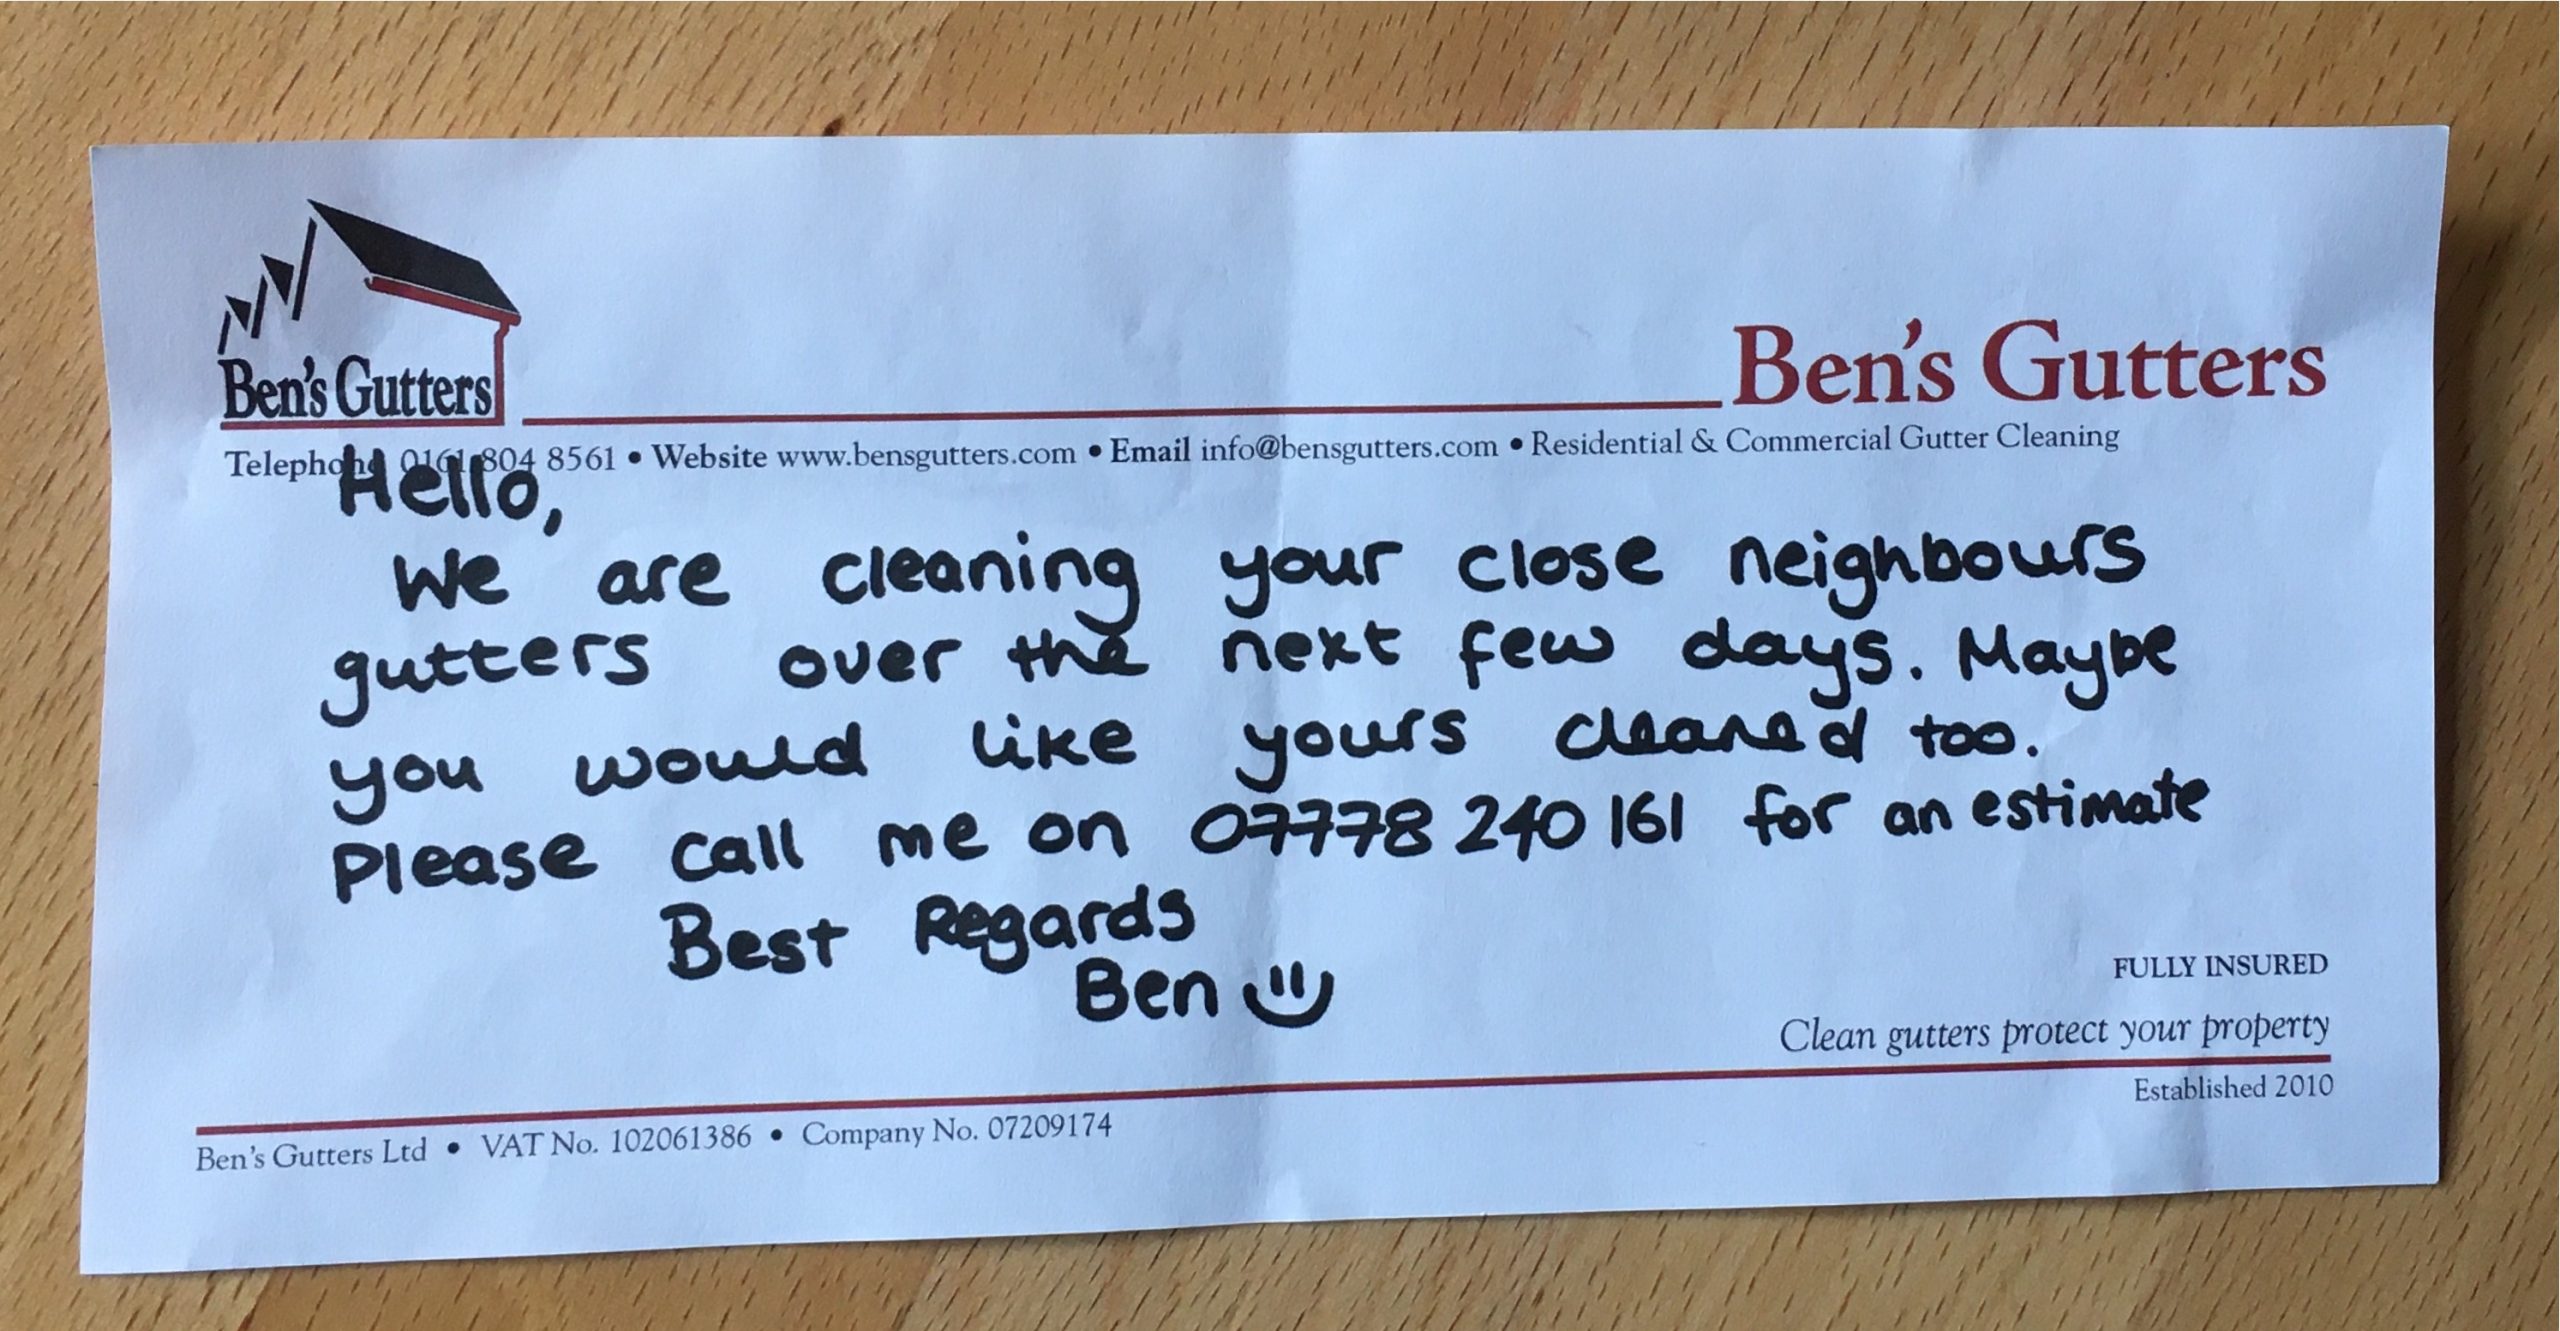 Ben's Gutters
Ben's Gutters
Telephone 0161 804 8561 • Website www.bensgutters.com • Email info@bensgutters.com • Residential & Commercial Gutter Cleaning
Hello,
We are cleaning your close neighbours
gutters over the next few days. Maybe
you would like yours cleaned too.
Please call me on 07778 240 161 for an estimate
Best Regards
Ben
FULLY INSURED
Clean gutters protect your property
Established 2010
Ben's Gutters Ltd • VAT No. 102061386 • Company No. 07209174